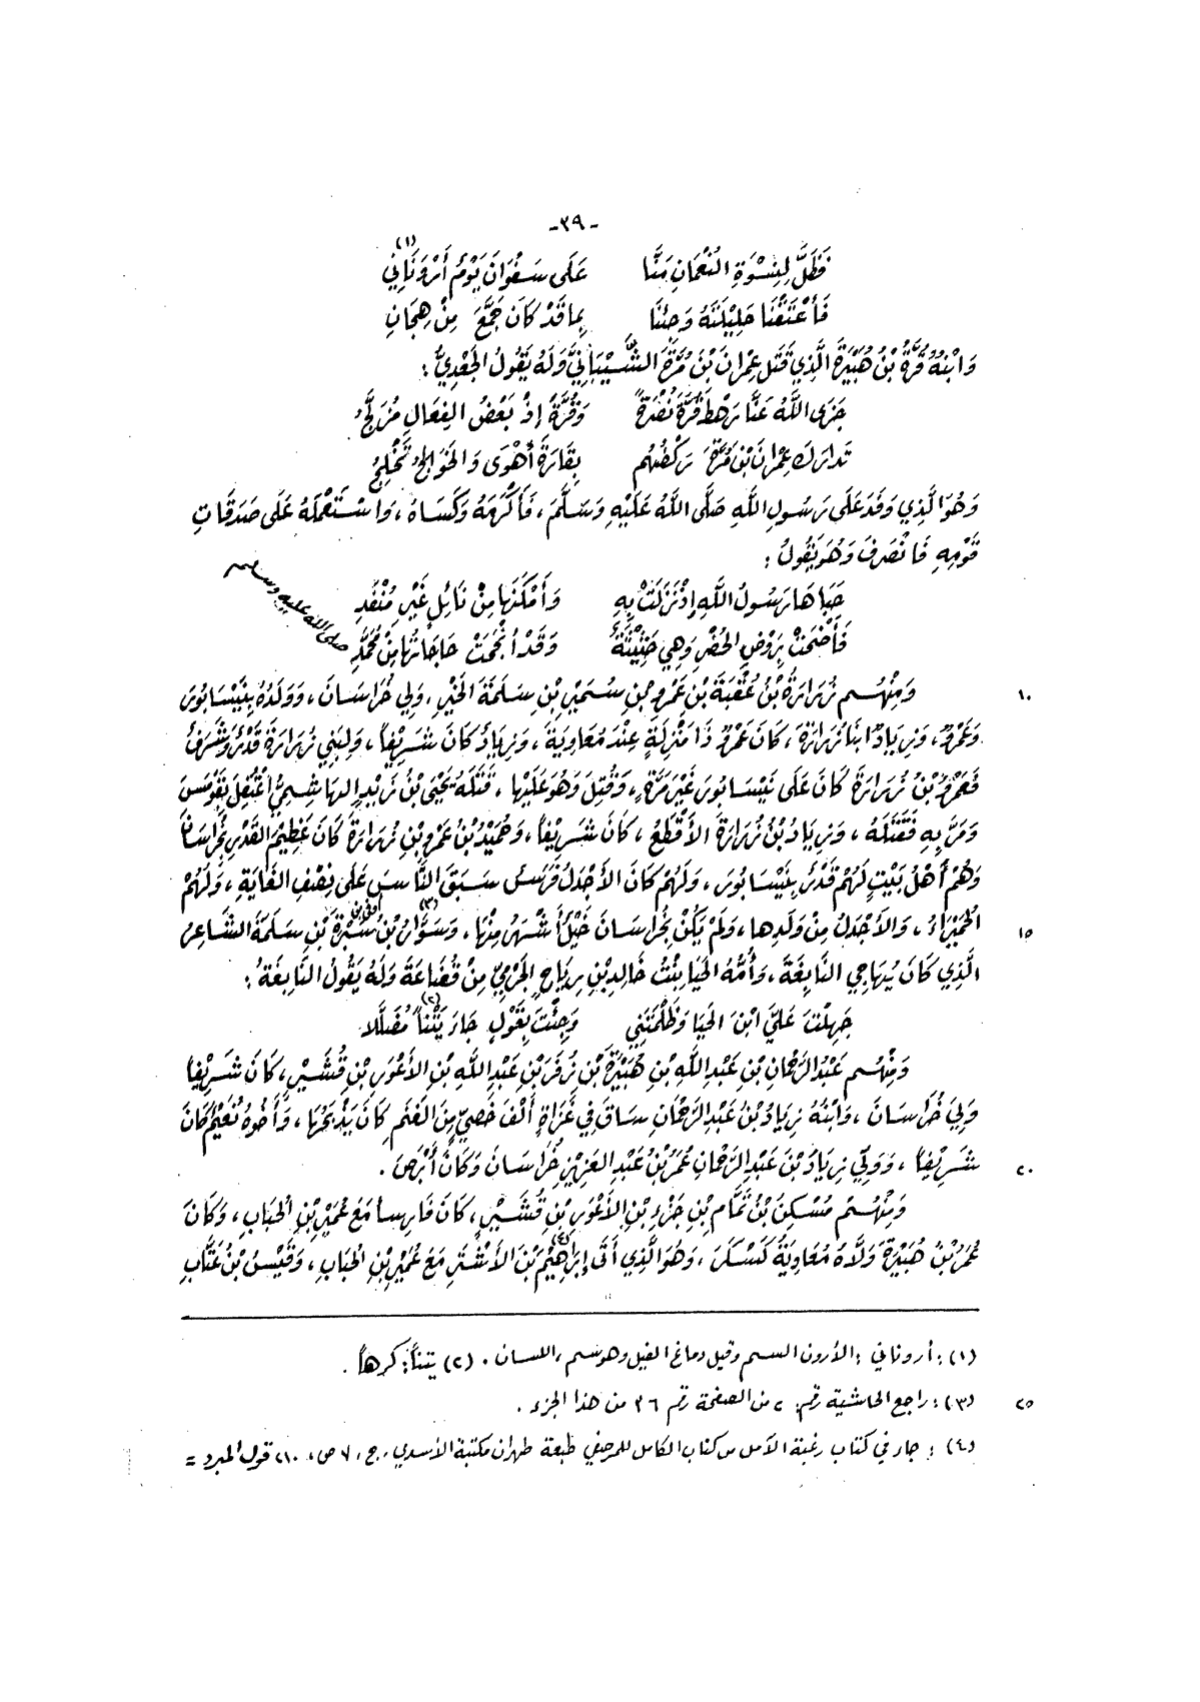 -٣٩-
فَظَلَّ لِنِسْوَةِ النُّعْمَانِ مِنَّا عَلَى سَفَوَانَ يَوْمٌ أَرْوَنَانِي (١)
فَأَعْتَقْنَا حَلِيْلَتَهُ وَجِئْنَا بِمَا قَدْ كَانَ جَمَّعَ مِنْ هِجَانِ
وَابْنُهُ قُرَّةُ بْنُ هُبَيْرَةَ الَّذِي قَتَلَ عِمْرَانَ بْنَ مُرَّةَ الشَّيْبَانِيَّ وَلَهُ يَقُولُ الجَعْدِيُّ :
جَزَى اللَّهُ عَنَّا رَهْطَ قُرَّةَ نُصْرَةً وَقُرَّةَ إِذْ بَعْضُ الفِعَالِ مُزَلَّجُ
تَدَارَكَ عِمْرَانَ بْنَ مُرَّةَ رَكْضُهُم بِقَارَةِ أَهْوَى وَالخَوَالِجُ تَخْلِجُ
وَهُوَ الَّذِي وَفَدَ عَلَى رَسُولِ اللَّهِ صَلَّى اللَّهُ عَلَيْهِ وَسَلَّمَ ، فَأَكْرَمَهُ وَكَسَاهُ ، وَاسْتَعْمَلَهُ عَلَى صَدَقَاتِ
قَوْمِهِ فَانْصَرَفَ وَهُوَ يَقُولُ :
حَبَاهَا رَسُولُ اللَّهِ إِذْ نَزَلَتْ بِهِ وَأَمْكَنَهَا مِنْ نَائِلٍ غَيْرِ مُنْفَدِ
فَأَضْحَتْ بِرَوْضِ الخُضْرِ وَهِيَ حَثِيْثَةٌ وَقَدْ أَنْجَحَتْ حَاجَاتُهَا مِنْ مُحَمَّدِ صلى الله عليه وسلم
١٠ وَمِنْهُم زُرَارَةُ بْنُ عُقْبَةَ بْنِ عَمْرِو بْنِ سُمَيْرِ بْنِ سَلَمَةَ الخَيْرِ ، وَلِي خُرَاسَانَ ، وَوَلَدُهُ بِنَيْسَابُورَ
وَعَمْرٌو ، وَزِيَادٌ ابْنَا زُرَارَةَ ، كَانَ عَمْرٌو ذَا مَنْزِلَةٍ عِنْدَ مُعَاوِيَةَ ، وَزِيَادٌ كَانَ شَرِيْفاً ، وَلِبَنِي زُرَارَةَ قَدْرٌ وَشَرَفٌ
فَعَمْرُو بْنُ زُرَارَةَ كَانَ عَلَى نَيْسَابُورَ غَيْرَ مَرَّةٍ ، وَقُتِلَ وَهُوَ عَلَيْهَا ، قَتَلَهُ يَحْيَى بْنُ زَيْدٍ الهَاشِمِيُّ اعْتُقِلَ بِقَوْمَسَ
وَمَرَّ بِهِ فَقَتَلَهُ ، وَزِيَادُ بْنُ زُرَارَةَ الأَقْطَعُ ، كَانَ شَرِيْفاً ، وَحُمَيْدُ بْنُ عَمْرِو بْنِ زُرَارَةَ كَانَ عَظِيْمَ القَدْرِ بِخُرَاسَانَ
وَهُمْ أَهْلُ بَيْتٍ لَهُمْ قَدْرٌ بِنَيْسَابُورَ ، وَلَهُمْ كَانَ الأَجْدَلُ فَرَسٌ سَبَقَ النَّاسَ عَلَى نِصْفِ الغَايَةِ ، وَلَهُمْ
١٥ الحُمَيْرَاءُ ، وَالأَجْدَلُ مِنْ وَلَدِهَا ، وَلَمْ يَكُنْ بِخُرَاسَانَ خَيْلٌ أَشْهَرُ مِنْهَا ، وَسَوَّارُ بْنُ (٣) سَبْرَةَ بْنِ سَلَمَةَ الشَّاعِرُ
الَّذِي كَانَ يُهَاجِي النَّابِغَةَ ، وَأُمُّهُ الحَيَا بِنْتُ خَالِدِ بْنِ رِيَاحٍ الجَرْمِيِّ مِنْ قُضَاعَةَ وَلَهُ يَقُولُ النَّابِغَةُ :
جَهِلْتَ عَلَيَّ ابْنَ الحَيَا وَظَلَمْتَنِي وَجِئْتَ بِقَوْلٍ جَاءَ يَتْناً (٢) مُضَلَّلا
وَمِنْهُم عَبْدُ الرَّحْمَانِ بْنِ عَبْدِ اللَّهِ بْنِ هُبَيْرَةَ بْنِ زُفَرَ بْنِ عَبْدِ اللَّهِ بْنِ الأَعْوَرِ بْنِ قُشَيْرٍ ، كَانَ شَرِيْفاً
وَلِيَ خُرَاسَانَ ، وَابْنُهُ زِيَادُ بْنُ عَبْدِ الرَّحْمَانِ سَاقَ فِي غَزَاةٍ أَلْفَ خَصِيٍّ مِنَ الغَنَمِ كَانَ يَذْبَحُهَا ، وَأَخُوهُ نُعَيْمٌ كَانَ
٢٠ شَرِيْفاً ، وَوَلَّى زِيَادَ بْنَ عَبْدِ الرَّحْمَانِ عُمَرُ بْنُ عَبْدِ العَزِيْزِ خُرَاسَانَ وَكَانَ أَبْرَصَ .
وَمِنْهُم مُسْكِنُ بْنُ تَمَّامِ بْنِ جَزْءِ بْنِ الأَعْوَرِ بْنِ قُشَيْرٍ ، كَانَ فَارِساً مَعَ عُمَيْرِ بْنِ الحُبَابِ ، وَكَانَ
عُمَرُ بْنُ هُبَيْرَةَ وَلَّاهُ مُعَاوِيَةَ كَسْكَرَ ، وَهُوَ الَّذِي أَتَى إِبْرَاهِيْمَ (٤) بْنَ الأَشْتَرِ مَعَ عُمَيْرِ بْنِ الحُبَابِ ، وَقَيْسُ بْنُ عَتَّابِ
(١) : أروناني : الأرون السم وقيل دماغ الفيل وهو سم ، اللسان . (٢) يتناً : كرهاً .
٢٥ (٣) : راجع الحاشية رقم : ٢ من الصفحة رقم ٣٦ من هذا الجزء .
(٤) : جاء في كتاب رغبة الآمل من كتاب الكامل للمرصفي طبعة طهران مكتبة الأسدي ، ج ، ٧ ص ، ٢١٠ قول المبرد =